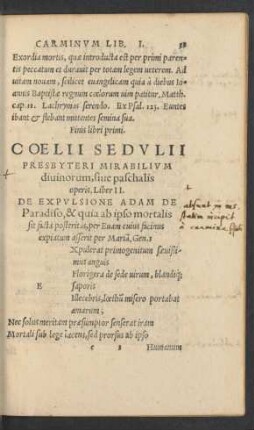 CARMINVM LIB. I.
Exordia mortis, quæ introducta est per primi paren-
tis peccatum et durauit per totam legem ueterem. Ad
uitam nouam, scilicet euangelicam quia à diebus Io-
annis Baptistæ regnum cœlorum uim patitur. Matth.
cap. 11. Lachrymis serendo. Ex Psal. 125. Euntes
ibant & flebant mittentes semina sua.
Finis libri primi.
COELII SEDVLII
PRESBYTERI MIRABILIVM
diuinorum, siue paschalis
operis, Liber II.
DE EXPVLSIONE ADAM DE
Paradiso, & quia ab ipso mortalis
sit facta posteritas, per Euam cuius facinus
expiatum asserit per Mariā, Gen. 3
EXpulerat primogenitum sæuissi-
mus anguis
Florigera de sede uirum, blandiq́;
saporis
Illecebris, lœthū misero portabat
amarum;
Nec solus meritam præsumptor senserat iram
Mortali sub lege iacens, sed prorsus ab ipso
e 2 Humanum